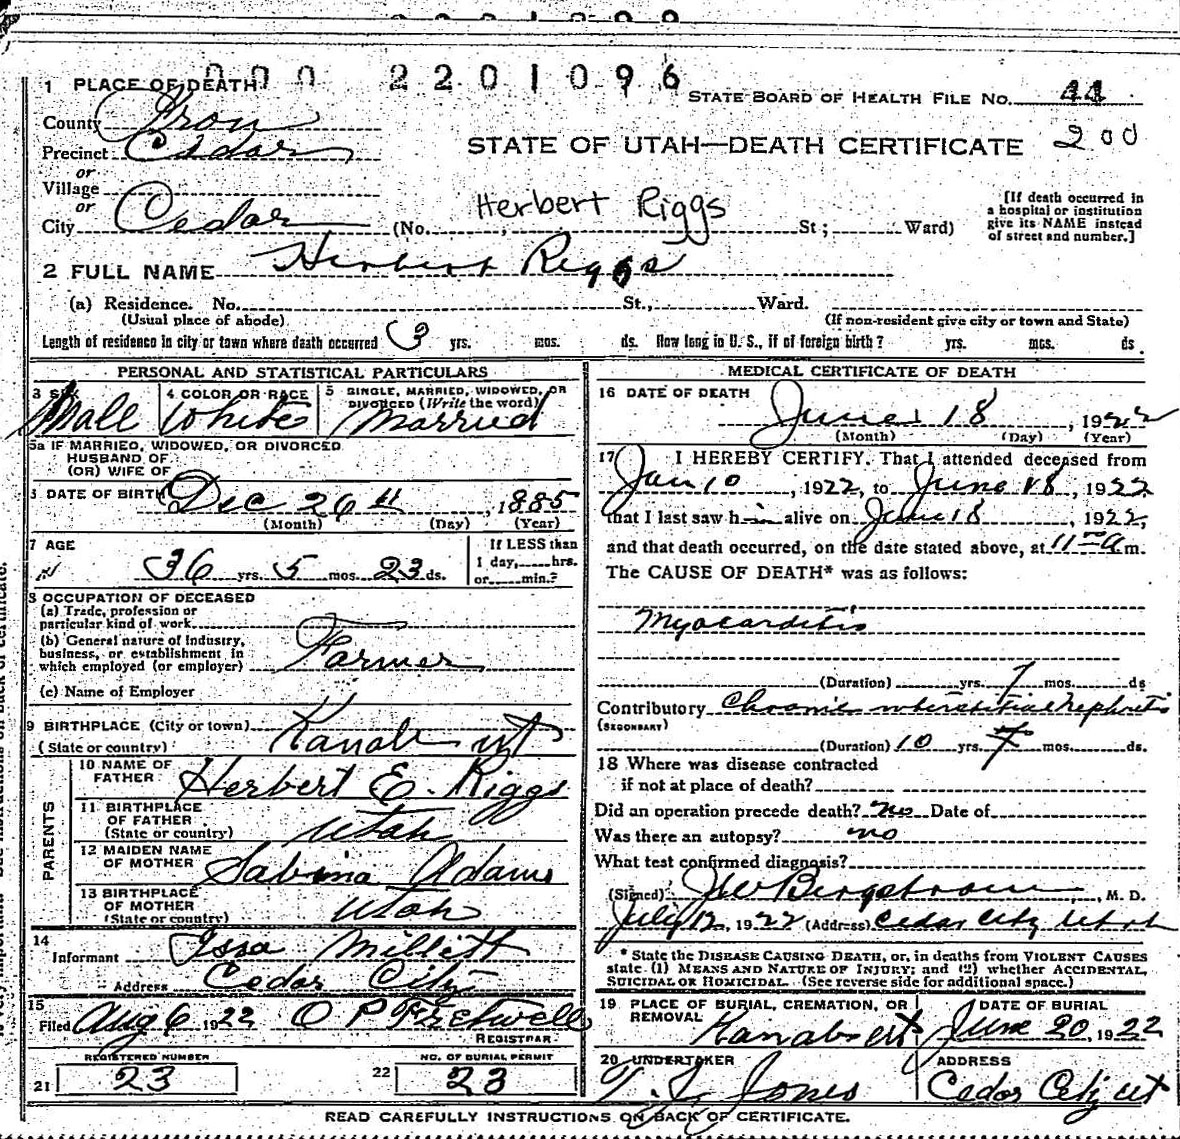 000 2201096
1 PLACE OF DEATH
STATE BOARD OF HEALTH FILE NO. 44
County Iron
STATE OF UTAH—DEATH CERTIFICATE 200
Precinct Cedar
or
Village
or
City Cedar (No. Herbert Riggs St; Ward)
[If death occurred in a hospital or institution give its NAME instead of street and number.]
2 FULL NAME Herbert Riggs
(a) Residence. No. St., Ward.
(Usual place of abode) (If non-resident give city or town and State)
Length of residence in city or town where death occurred 3 yrs. mos. ds. How long in U. S., if of foreign birth? yrs. mos. ds
PERSONAL AND STATISTICAL PARTICULARS
3 SEX Mall
4 COLOR OR RACE White
5 SINGLE, MARRIED, WIDOWED, OR DIVORCED (Write the word) Married
5a IF MARRIED, WIDOWED, OR DIVORCED
HUSBAND OF
(OR) WIFE OF
DATE OF BIRTH Dec 26th, 1885
(Month) (Day) (Year)
7 AGE 36 yrs. 5 mos. 23 ds.
If LESS than
1 day, hrs.
or min.?
8 OCCUPATION OF DECEASED
(a) Trade, profession or
particular kind of work
(b) General nature of industry,
business, or establishment in
which employed (or employer) Farmer
(c) Name of Employer
9 BIRTHPLACE (City or town)
(State or country) Kanab ut
PARENTS
10 NAME OF FATHER Herbert E. Riggs
11 BIRTHPLACE OF FATHER (State or country) Utah
12 MAIDEN NAME OF MOTHER Sabina Adams
13 BIRTHPLACE OF MOTHER (State or country) Utah
14 Informant Millett
Address Cedar City
15 Filed Aug 6 1922 O P Fretwell
REGISTRAR
REGISTERED NUMBER
21 23
NO. OF BURIAL PERMIT
22 23
MEDICAL CERTIFICATE OF DEATH
16 DATE OF DEATH
June 18, 1922
(Month) (Day) (Year)
17 I HEREBY CERTIFY. That I attended deceased from
Jan 10, 1922, to June 18, 1922
that I last saw him alive on June 18, 1922,
and that death occurred, on the date stated above, at 11 a m.
The CAUSE OF DEATH* was as follows:
Myocarditis
(Duration) yrs. 7 mos. ds
Contributory Chronic interstitial Nephritis
(SECONDARY)
(Duration) 10 yrs. mos. ds.
18 Where was disease contracted
if not at place of death?
Did an operation precede death? no Date of
Was there an autopsy? no
What test confirmed diagnosis?
(Signed) J W Bergstrom, M. D.
July 12, 1922 (Address) Cedar City Utah
* State the DISEASE CAUSING DEATH, or, in deaths from VIOLENT CAUSES
state (1) MEANS AND NATURE OF INJURY; and (2) whether ACCIDENTAL,
SUICIDAL OR HOMICIDAL. (See reverse side for additional space.)
19 PLACE OF BURIAL, CREMATION, OR REMOVAL Kanab ut
DATE OF BURIAL June 20, 1922
20 UNDERTAKER Jones
ADDRESS Cedar City ut
READ CAREFULLY INSTRUCTIONS ON BACK OF CERTIFICATE.